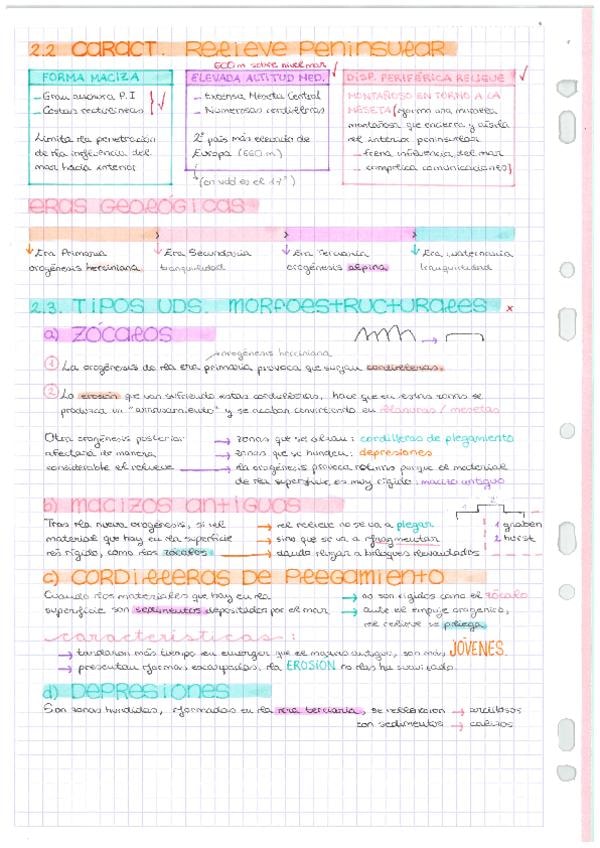 2.2 CARACT. RELIEVE PENINSULAR
660m sobre nivel mar
FORMA MACIZA
- Gran anchura P.I
- Costas rectilíneas
Limita la penetración
de la influencia del
mar hacia interior
ELEVADA ALTITUD MED.
- Extensa Meseta Central
- Numerosas cordilleras
2º país más elevado de
Europa (660 m)
(en vdd es el 17º)
DISP. PERIFÉRICA RELIEVE
MONTAÑOSO EN TORNO A LA
MESETA (forma una muralla
montañosa que encierra y aísla
el interior peninsular
- frena influencia del mar
- complica comunicaciones)
ERAS GEOLÓGICAS
Era Primaria
orogénesis herciniana
Era Secundaria
tranquilidad
Era Terciaria
orogénesis alpina
Era cuaternaria
tranquilidad
2.3. TIPOS UDS. MORFOESTRUCTURALES x
a) ZÓCALOS
orogénesis herciniana
1 La orogénesis de la era primaria provoca que surjan cordilleras.
2 La erosión que van sufriendo estas cordilleras, hace que en estas zonas se
produzca un "arrasamiento" y se acaban convirtiendo en llanuras / mesetas
Otra orogénesis posterior → zonas que se elevan: cordilleras de plegamiento
afectará de manera → zonas que se hunden: depresiones
considerable el relieve → la orogénesis provoca roturas porque el material
de la superficie es muy rígido: macizo antiguo
b) MACIZOS ANTIGUOS
Tras la nueva orogénesis, si el → el relieve no se va a plegar
material que hay en la superficie → sino que se va a fragmentar
es rígido, como los zócalos → dando lugar a bloques levantados
1 2 1
1 graben
2 horst
c) CORDILLERAS DE PLEGAMIENTO
Cuando los materiales que hay en la → no son rígidos como el zócalo
superficie son sedimentos depositados por el mar → ante el empuje orogénico,
el relieve se pliega
características:
→ tardaron más tiempo en emerger que el macizo antiguo, son más JÓVENES.
→ presentan formas escarpadas, la EROSIÓN no las ha suavizado
d) DEPRESIONES
Son zonas hundidas, formadas en la era terciaria, se rellenaron → arcillosos
con sedimentos → calizos